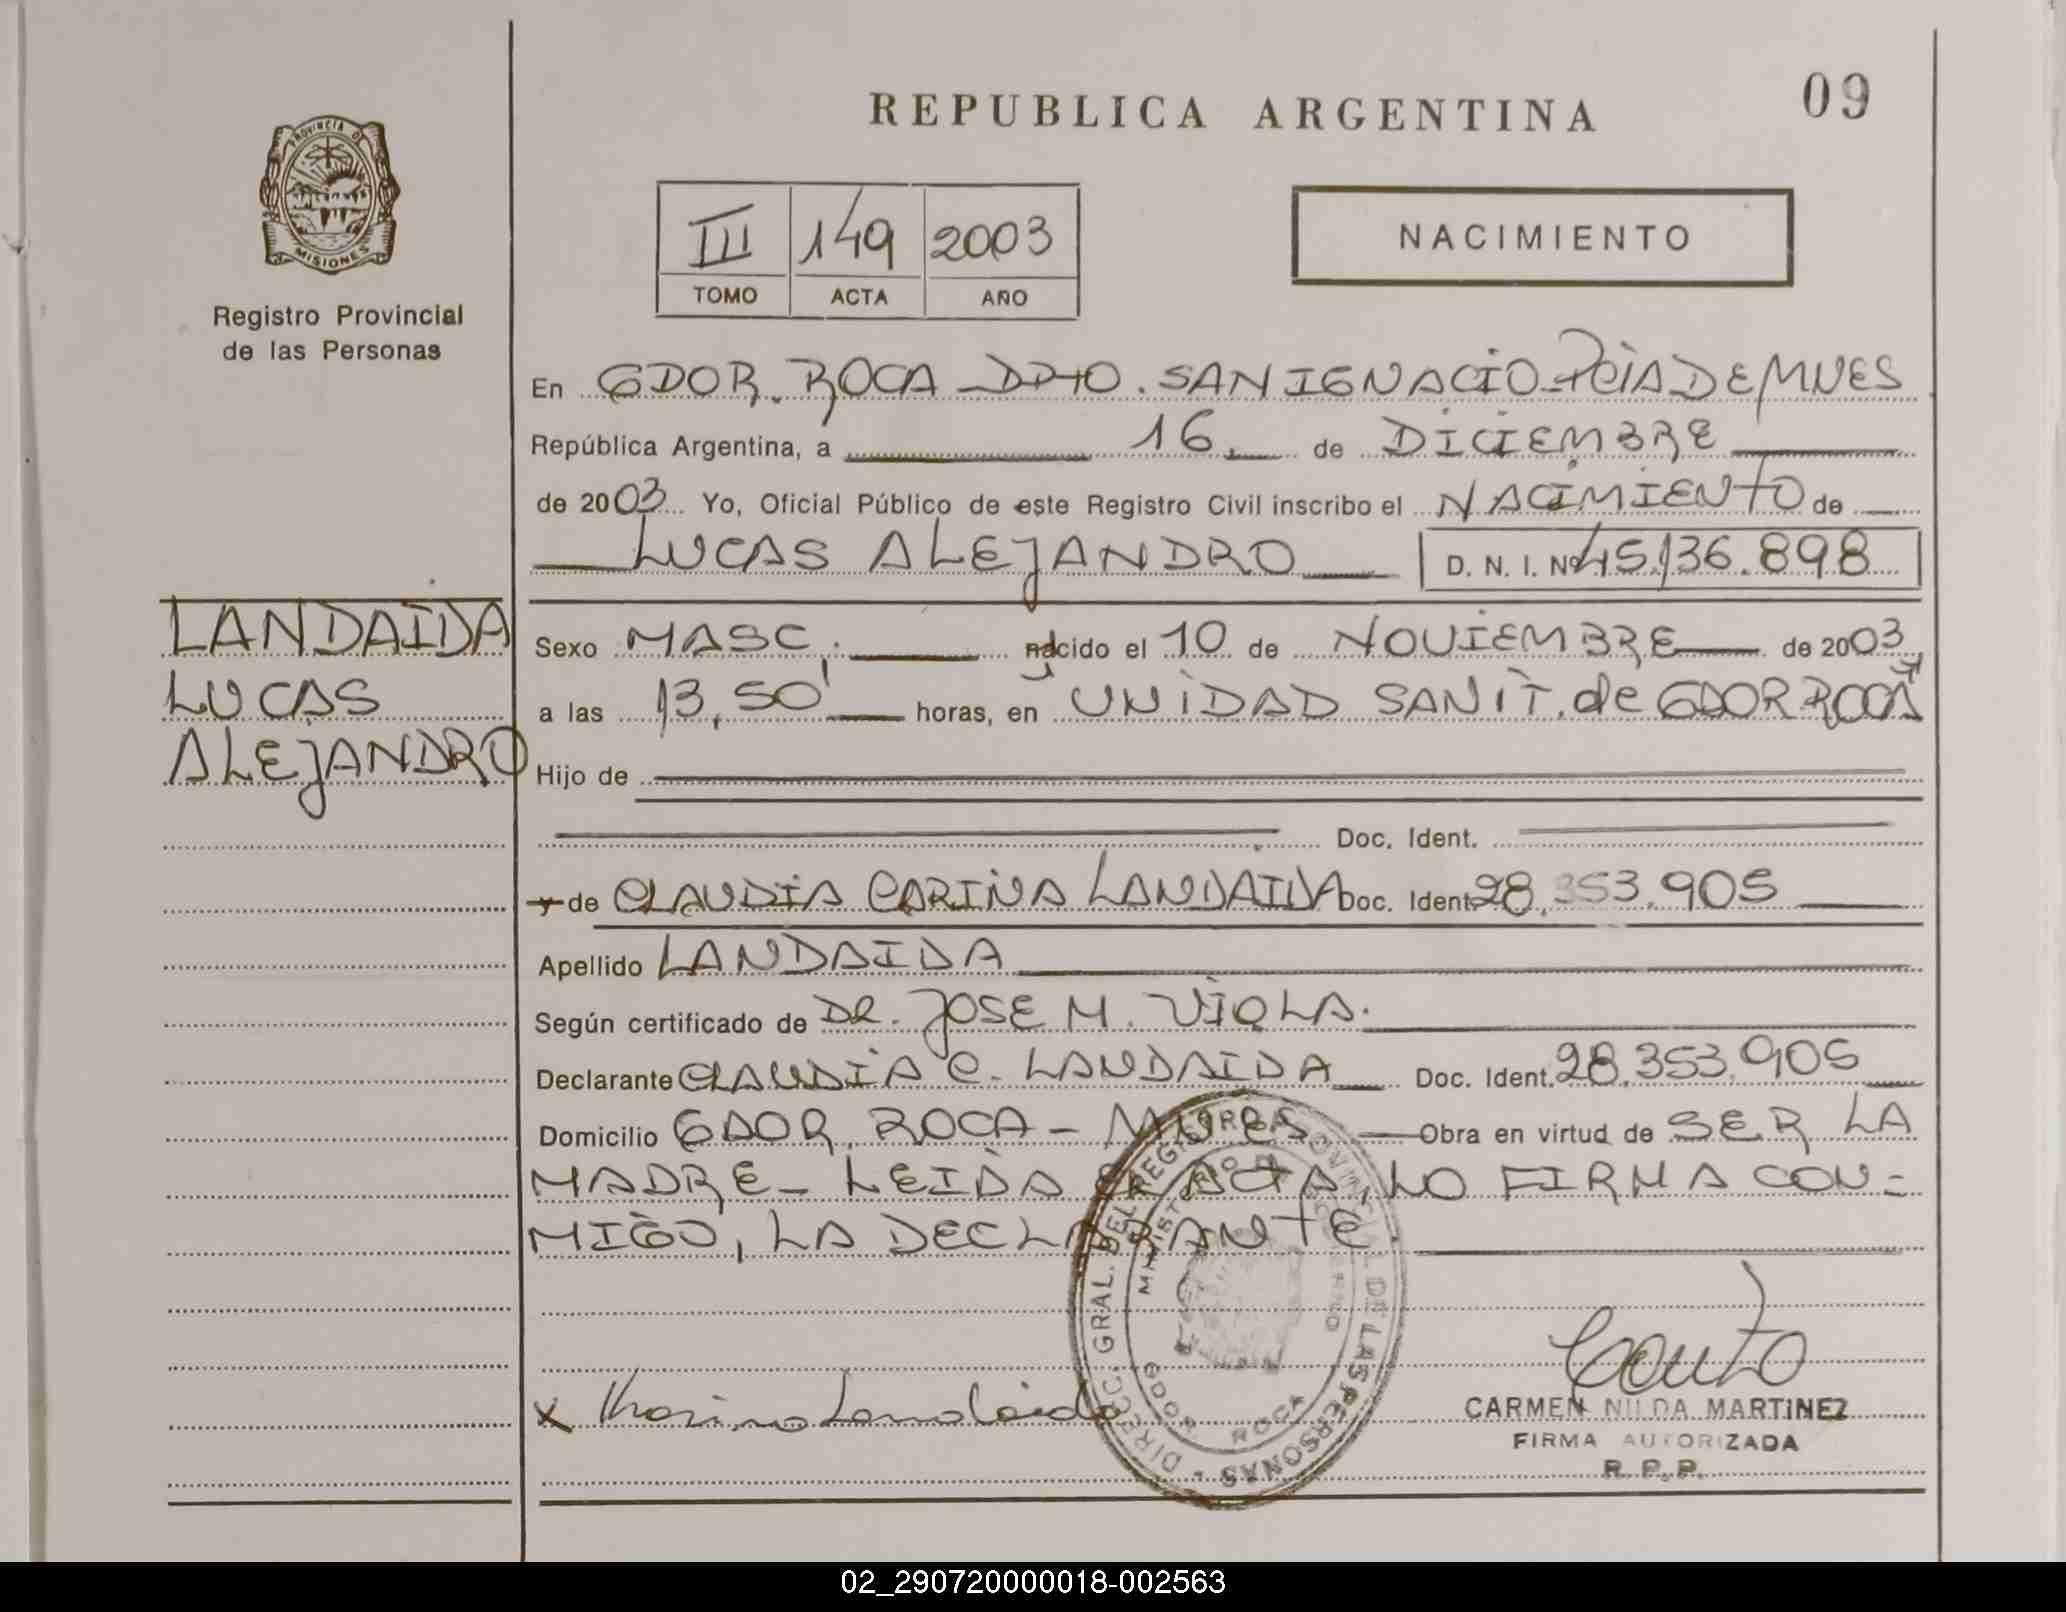 REPUBLICA ARGENTINA
09
PROVINCIA DE
MISIONES
Registro Provincial
de las Personas
III 149 2003
TOMO ACTA AÑO
NACIMIENTO
En GDOR. ROCA DPTO. SAN IGNACIO PCIA DE MNES
República Argentina, a 16 de DICIEMBRE
de 2003 Yo, Oficial Público de este Registro Civil inscribo el NACIMIENTO de
LUCAS ALEJANDRO D. N. I. Nº 45.136.898
LANDAIDA
LUCAS
ALEJANDRO
Sexo MASC. nacido el 10 de NOVIEMBRE de 2003
a las 13,50' horas, en UNIDAD SANIT. de GDOR ROCA
Hijo de
Doc. Ident.
y de CLAUDIA CARINA LANDAIDA Doc. Ident. 28.353.905
Apellido LANDAIDA
Según certificado de DR. JOSE M. VIOLA.
Declarante CLAUDIA C. LANDAIDA Doc. Ident. 28.353.905
Domicilio GDOR. ROCA - MNES Obra en virtud de SER LA
MADRE - LEIDA EL ACTA, LO FIRMA CON-
MIGO, LA DECLARANTE.
DIRECC. GRAL. DEL REGISTRO PROVINCIAL DE LAS PERSONAS
MINISTERIO DE GOBIERNO
GDOR. ROCA
x Karina Landaida
CARMEN NILDA MARTINEZ
FIRMA AUTORIZADA
R. P. P.
02_290720000018-002563